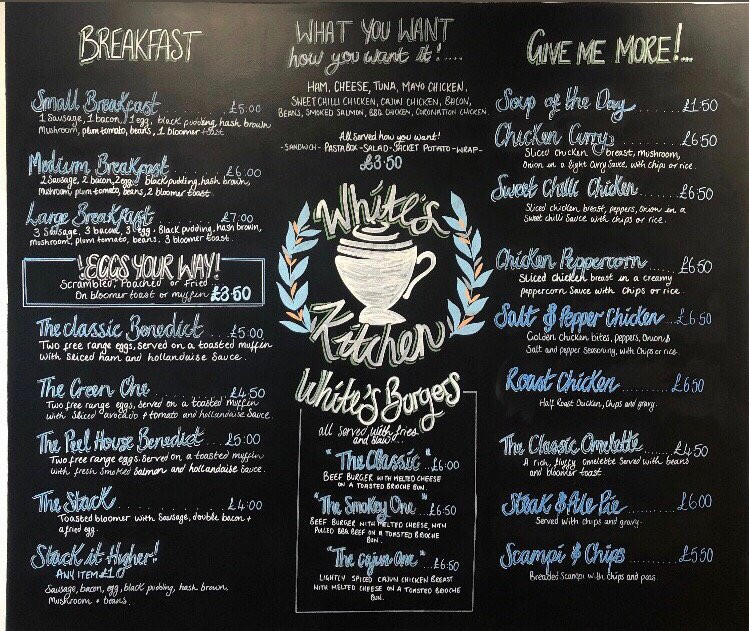 BREAKFAST
Small Breakfast ..... £5.00
1 Sausage, 1 bacon, 1 egg, black pudding, hash brown
Mushroom, plum tomato, beans, 1 bloomer toast
Medium Breakfast ..... £6.00
2 Sausage, 2 bacon, 2 egg, black pudding, hash brown,
Mushroom, plum tomato, beans, 2 bloomer toast
Large Breakfast ..... £7.00
3 Sausage, 3 bacon, 3 egg, black pudding, hash brown,
mushroom, plum tomato, beans, 3 bloomer toast.
!EGGS YOUR WAY!
Scrambled, Poached or Fried
On bloomer toast or muffin £3.50
The classic Benedict ..... £5:00
Two free range eggs, served on a toasted muffin
with sliced ham and hollandaise sauce.
The Green One ..... £4:50
Two free range eggs, served on a toasted muffin
with sliced avocado + tomato and hollandaise sauce
The Peel House Benedict ..... £5:00
Two free range eggs, served on a toasted muffin
with fresh smoked salmon and hollandaise sauce.
The Stack ..... £4:00
Toasted bloomer with sausage, double bacon +
a fried egg.
Stack it Higher!
ANY ITEM £1.0
Sausage, bacon, egg, black pudding, hash brown,
Mushroom + beans.
WHAT YOU WANT
how you want it!....
HAM, CHEESE, TUNA, MAYO CHICKEN,
SWEET CHILLI CHICKEN, CAJUN CHICKEN, BACON,
BEANS, SMOKED SALMON, BBQ CHICKEN, CORONATION CHICKEN
All served how you want!
-SANDWICH-PASTA BOX-SALAD-JACKET POTATO-WRAP-
£3:50
White's
Kitchen
White's Burgers
all served with fries
and slaw...
"The Classic" ...£6:00
BEEF BURGER WITH MELTED CHEESE
ON A TOASTED BRIOCHE BUN.
"The Smokey One" ...£6.50
BEEF BURGER WITH MELTED CHEESE, WITH
PULLED BBQ BEEF ON A TOASTED BRIOCHE
BUN.
"The cajun One" ...£6:50
LIGHTLY SPICED CAJUN CHICKEN BREAST
WITH MELTED CHEESE ON A TOASTED BRIOCHE
BUN.
GIVE ME MORE!...
Soup of the Day ..... £1.50
Chicken Curry ..... £6.50
Sliced chicken breast, mushroom,
Onion in a light Curry Sauce, with chips or rice.
Sweet Chilli Chicken ..... £6.50
Sliced chicken breast, peppers, Onion in a
Sweet chilli Sauce with chips or rice.
Chicken Peppercorn ..... £6.50
Sliced chicken breast in a creamy
peppercorn Sauce with chips or rice.
Salt & Pepper Chicken ..... £6.50
Golden chicken bites, peppers, Onion &
Salt and pepper Seasoning, with Chips or rice.
Roast Chicken ..... £6.50
Half Roast Chicken, Chips and gravy.
The Classic Omelette ..... £4.50
A rich, fluffy omelette served with beans
and bloomer toast
Steak & Ale Pie ..... £6.00
Served with chips and gravy.
Scampi & Chips ..... £5.50
Breaded Scampi with chips and peas